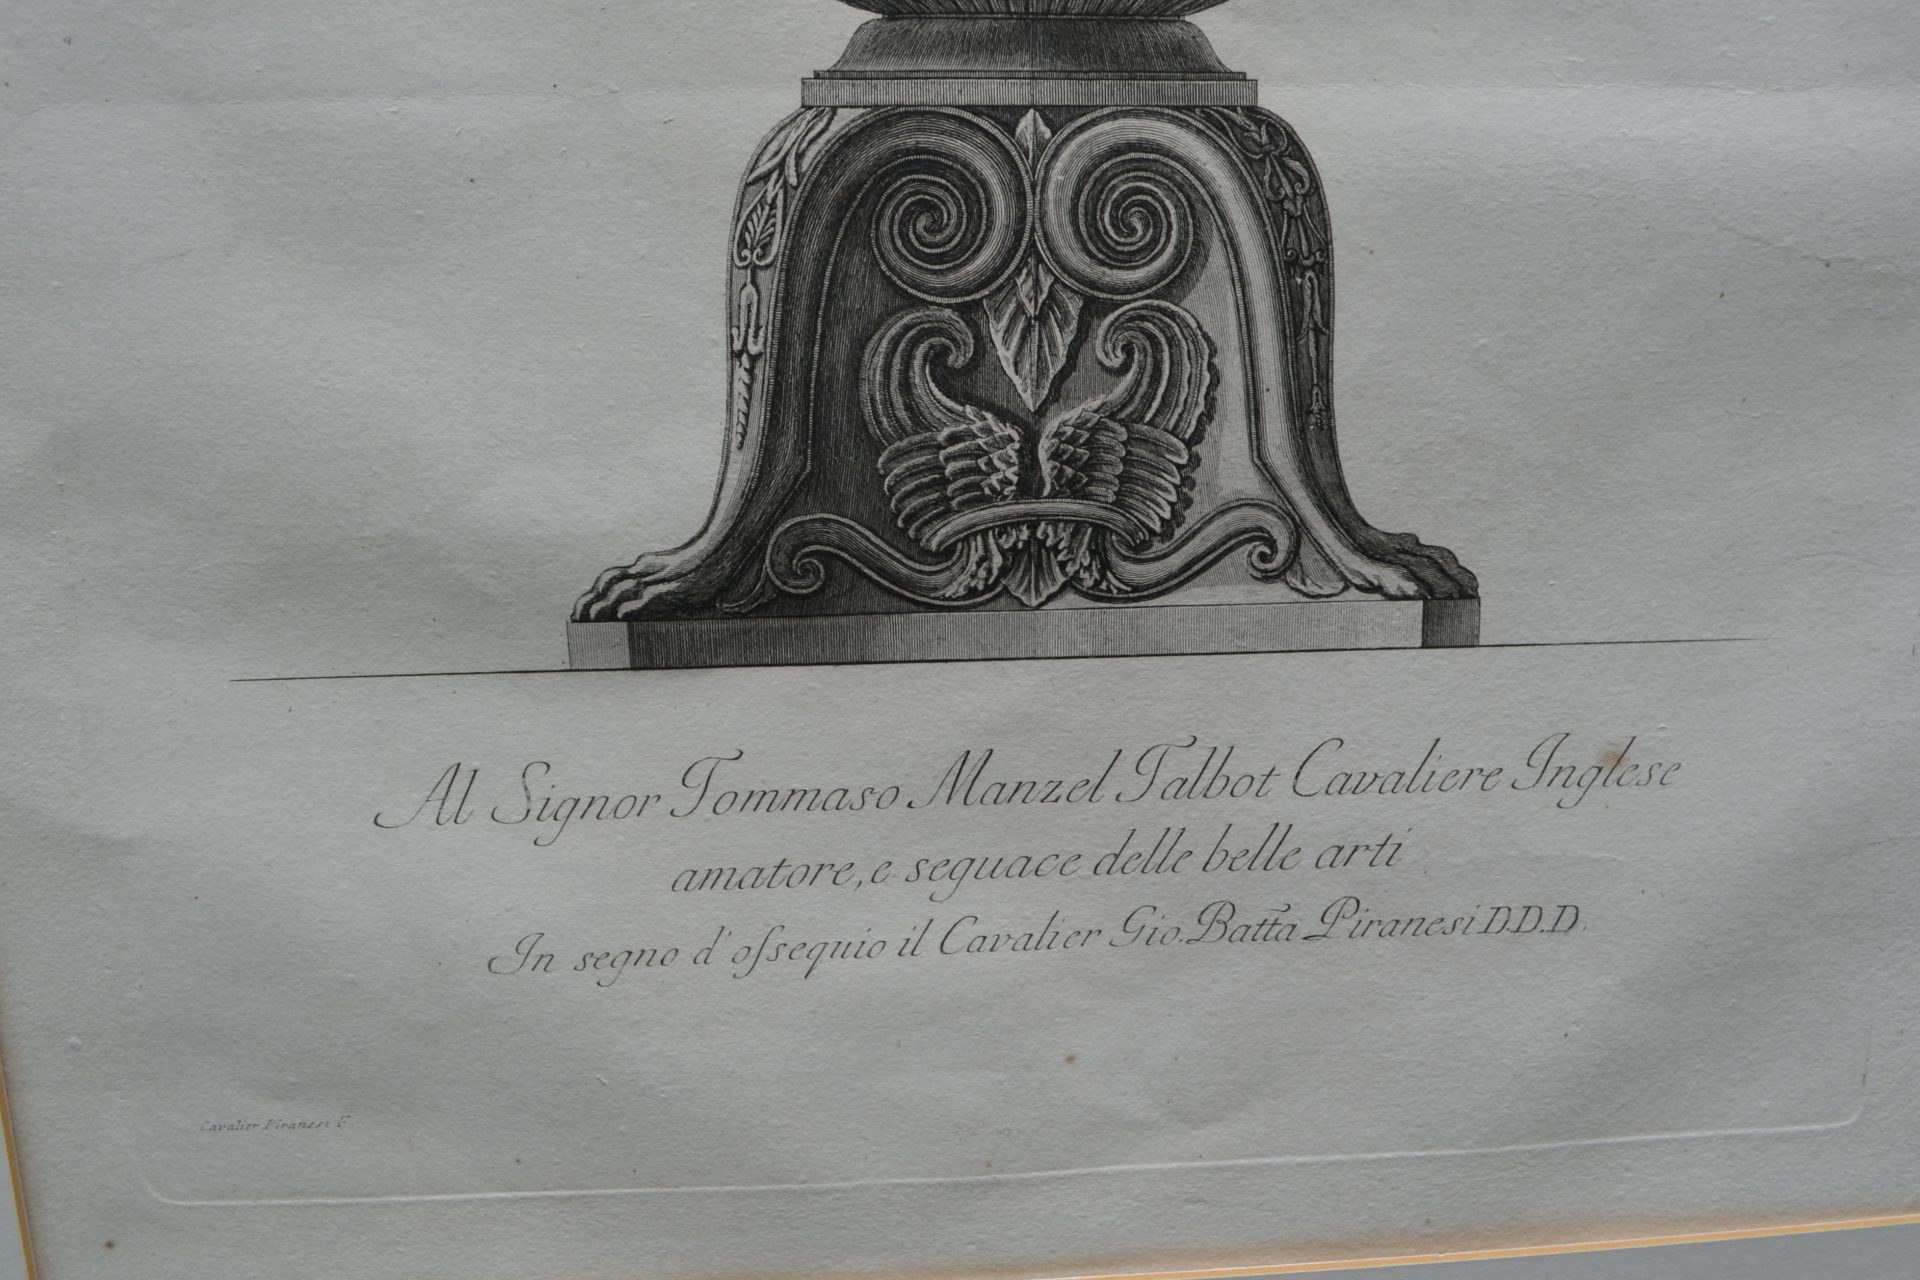 Al Signor Tommaso Manzel Talbot Cavaliere Inglese
amatore, e seguace delle belle arti
In segno d' oſsequio il Cavalier Gio. Batta Piranesi D.D.D.
Cavalier Piranesi F.